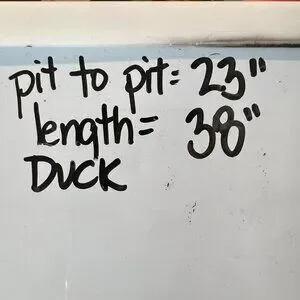 pit to pit= 23"
length= 38"
DUCK